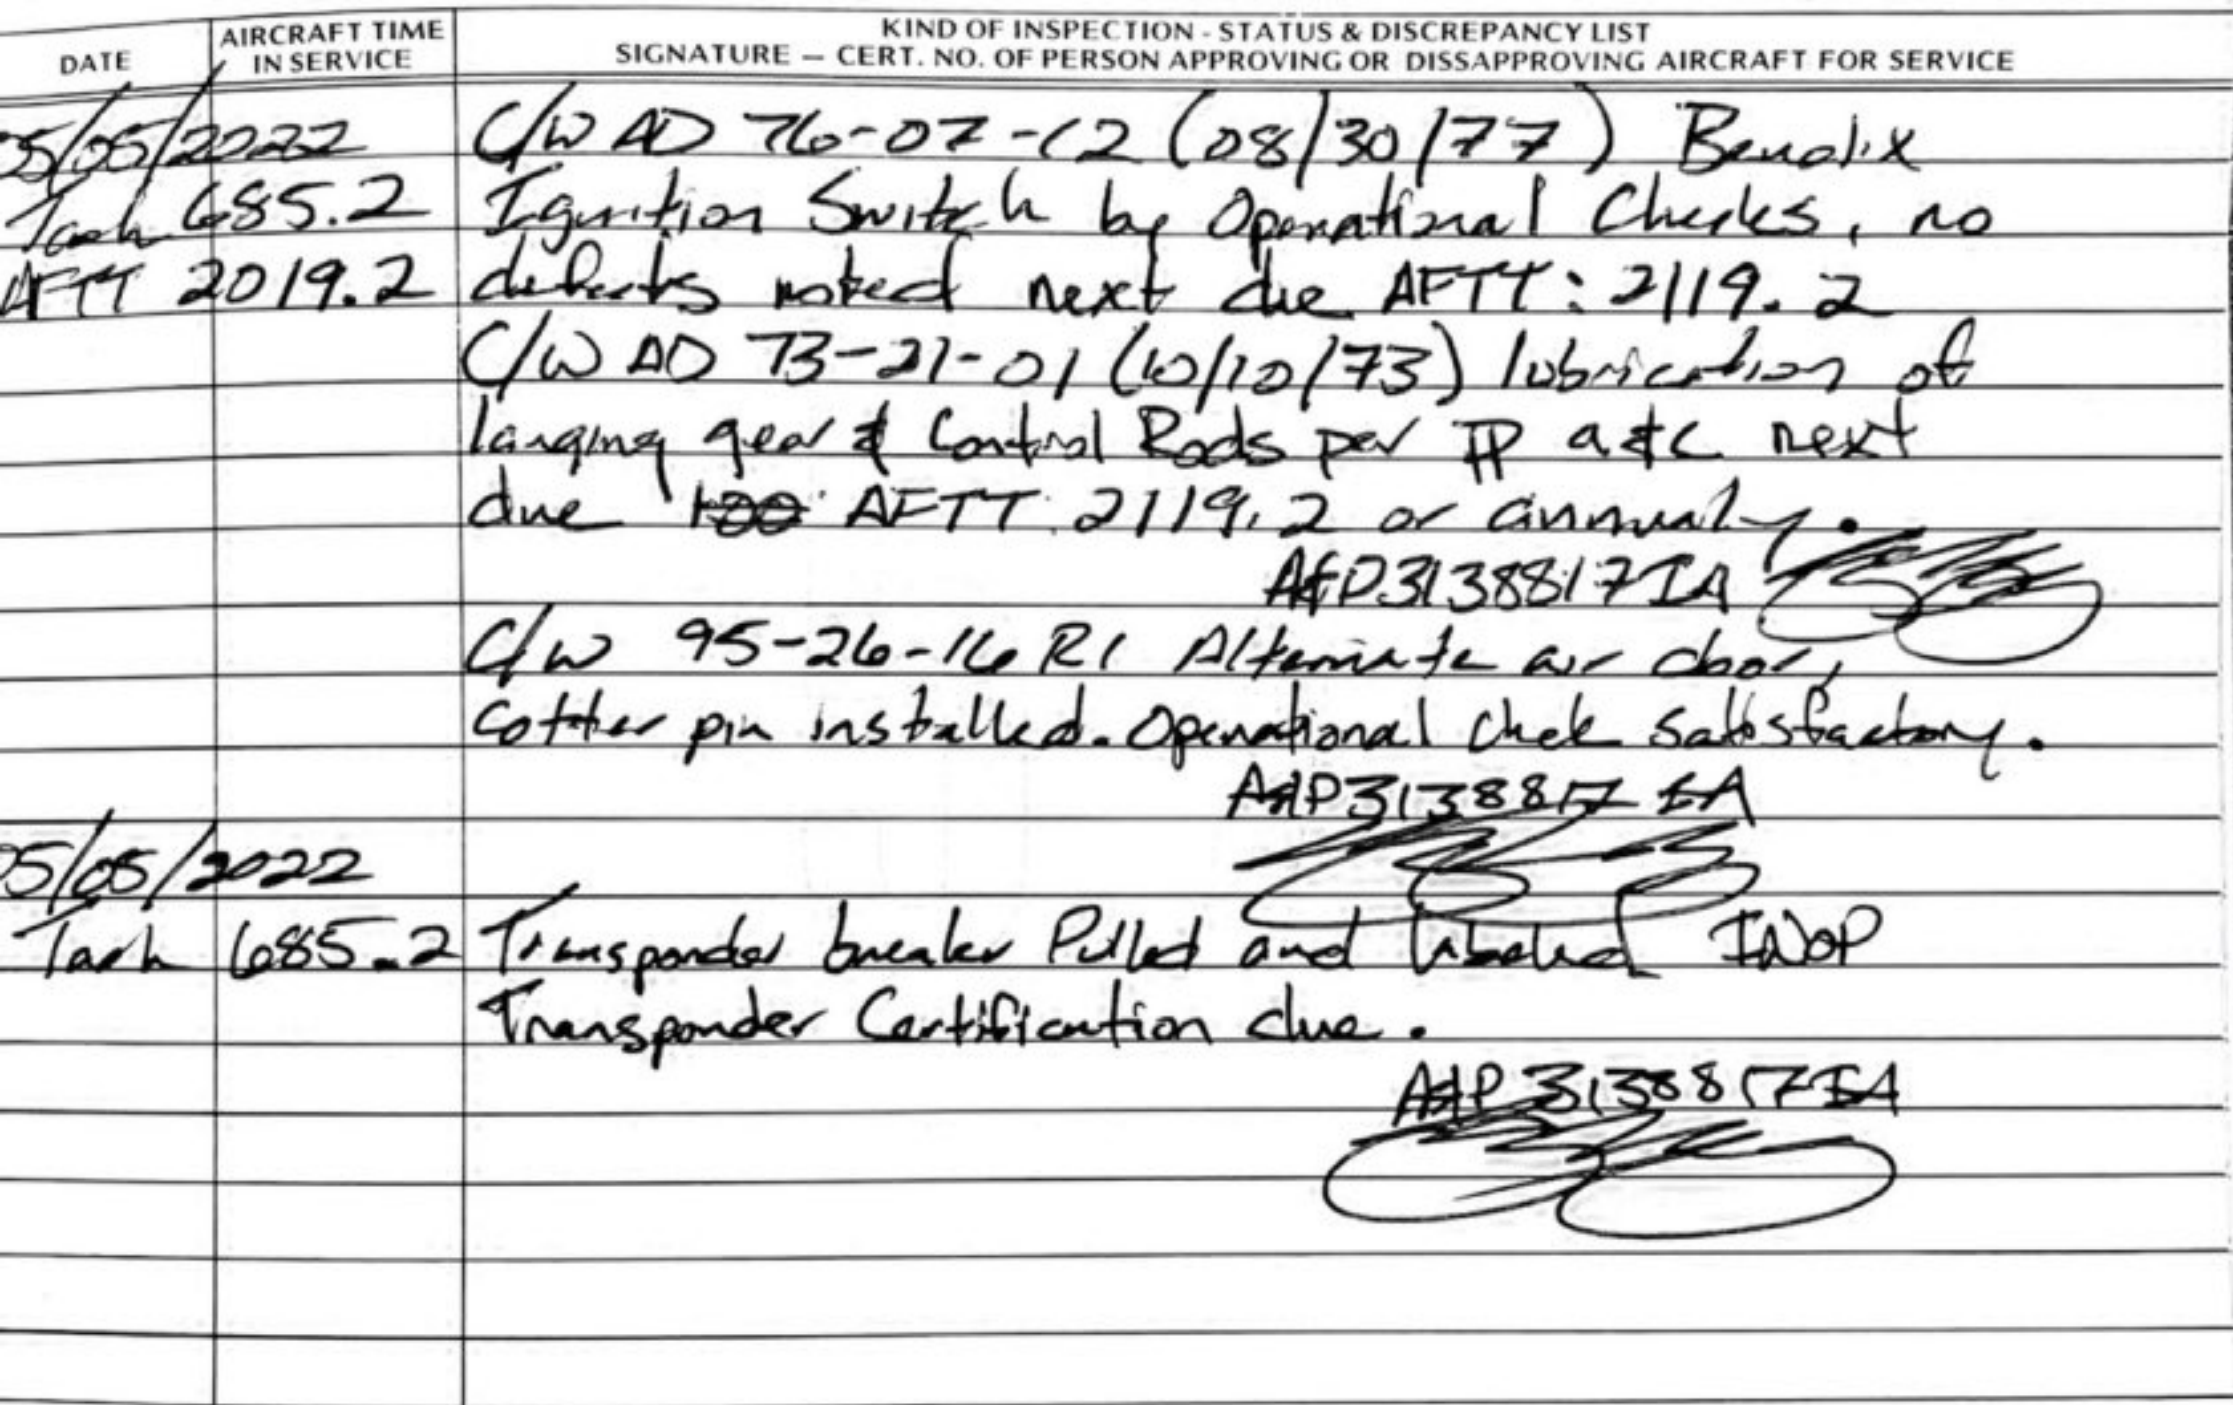 DATE
AIRCRAFT TIME
IN SERVICE
KIND OF INSPECTION - STATUS & DISCREPANCY LIST
SIGNATURE — CERT. NO. OF PERSON APPROVING OR DISSAPPROVING AIRCRAFT FOR SERVICE
05/05/2022 C/W AD 76-07-12 (08/30/77) Bendix
Tach 685.2 Ignition Switch by Operational Checks, no
AFTT 2019.2 defects noted next due AFTT: 2119.2
C/W AD 73-21-01 (10/10/73) lubrication of
langing gear & Control Rods per PP a&c next
due 100 AFTT 2119.2 or annualy.
A&P3138817IA
C/W 95-26-16 R1 Alternate air door,
Cotter pin installed. Operational Check Satisfactory.
A&P3138817 IA
05/05/2022
Tach 685.2 Transponder breaker Pulled and labeled INOP
Transponder Certification due.
A&P 3138817IA